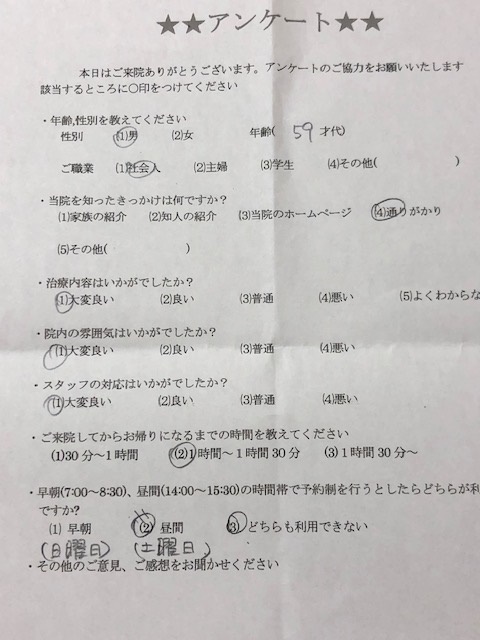 ★★アンケート★★
本日はご来院ありがとうございます。アンケートのご協力をお願いいたします
該当するところに〇印をつけてください
・年齢,性別を教えてください
性別 (1)男 (2)女 年齢( 59 才代)
ご職業 (1)社会人 (2)主婦 (3)学生 (4)その他( )
・当院を知ったきっかけは何ですか？
(1)家族の紹介 (2)知人の紹介 (3)当院のホームページ (4)通りがかり
(5)その他( )
・治療内容はいかがでしたか？
(1)大変良い (2)良い (3)普通 (4)悪い (5)よくわからな
・院内の雰囲気はいかがでしたか？
(1)大変良い (2)良い (3)普通 (4)悪い
・スタッフの対応はいかがでしたか？
(1)大変良い (2)良い (3)普通 (4)悪い
・ご来院してからお帰りになるまでの時間を教えてください
(1)30分～1時間 (2)1時間～1時間30分 (3)1時間30分～
・早朝(7:00～8:30)、昼間(14:00～15:30)の時間帯で予約制を行うとしたらどちらが利
ですか?
(1) 早朝 (2) 昼間 (3)どちらも利用できない
(日曜日) (土曜日)
・その他のご意見、ご感想をお聞かせください